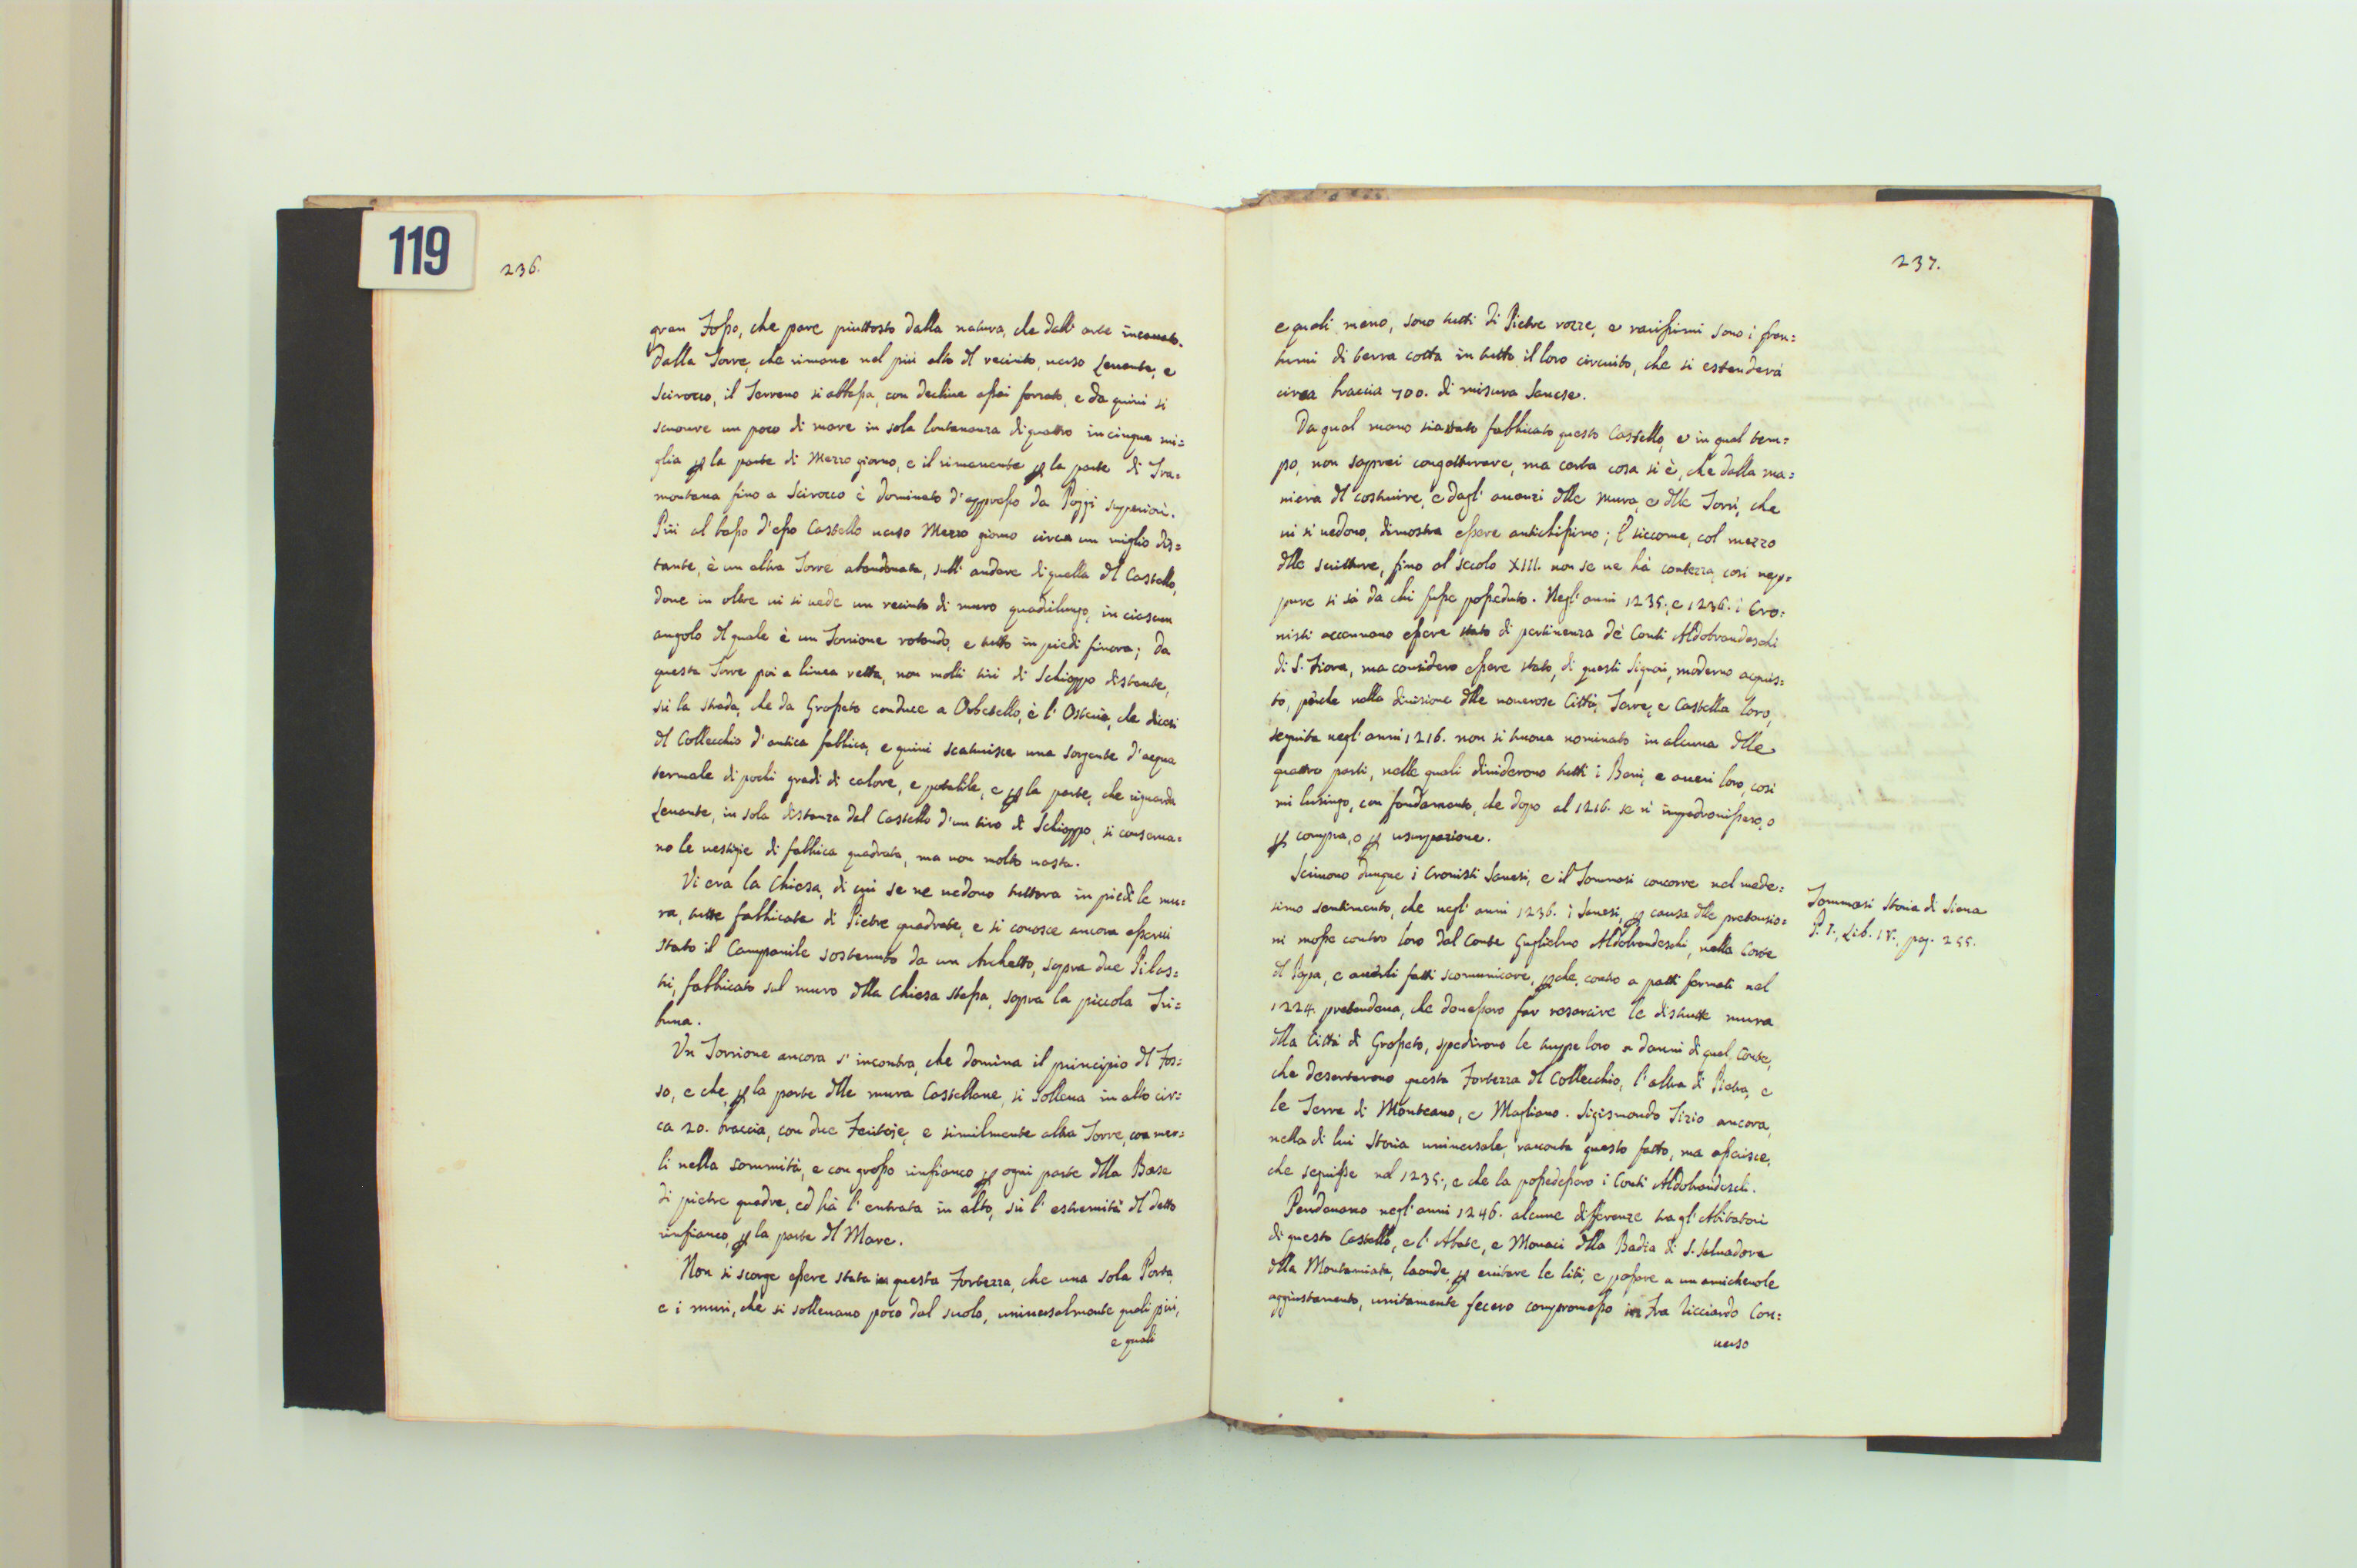 119
236.
gran Fosso, che pare piuttosto dalla natura, che dall'arte incauato.
Dalla Torre, che rimane nel più alto dl recinto, uerso Leuante, e
Scirocco, il Terreno si abbassa, con decline assai forzato, e da quiui si
scuoure un poco di mare in sola lontananza di quattro in cinque mi=
glia p la parte di Mezzo giorno, e il rimanente p la parte di Tra=
montana fino a Scirocco è dominato d'appresso da Poggi superiori.
Più al basso d'esso Castello uerso Mezzo giorno circa un miglio dis=
tante, è un altra Torre abandonata, sull'andare di quella dl Castello,
doue in oltre ui si uede un recinto di muro quadrilungo, in ciascun
angolo dl quale è un Torrione rotondo, e tutto in piedi finora; da
questa Torre poi a linea retta, non molti tiri di Schioppo distante,
sù la strada, che da Grosseto conduce a Orbetello, è l'Osteria, che dicesi
dl Collecchio d'antica fabbica, e quiui scaturisce una sorgente d'acqua
termale di pochi gradi di calore, e potabile, e p la parte, che riguarda
Leuante, in sola distanza dal Castello d'un tiro di Schioppo, si conserua=
no le uestigie di fabbica quadrata, ma non molto uasta.
Vi era la Chiesa, di cui se ne uedono tuttora in piedi le mu=
ra, tutte fabbicate di Pietre quadrate, e si conosce ancora esserui
stato il Campanile sostenuto da un Archetto, sopra due Pilas=
tri, fabbicato sul muro dlla Chiesa stessa, sopra la piccola Tri=
buna.
Un Torrione ancora s'incontra, che domina il principio dl Fos=
so, e che, p la parte dlle mura Castellane, si solleua in alto cir=
ca 20. braccia, con due Feritoje, e similmente altra Torre, con mer=
li nella sommità, e con grosso rinfianco p ogni parte dlla Base
di pietre quadre, ed hà l'entrata in alto, sù l'estremità dl detto
rinfianco, p la parte dl Mare.
Non si scorge essere stata in questa Fortezza, che una sola Porta,
e i muri, che si solleuano poco dal suolo, uniuersalmente quali più,
e quali
237.
e quali meno, sono tutti di Pietre rozze, e rarissimi sono i fran=
tumi di terra cotta in tutto il loro circuito, che si estenderà
circa braccia 700. di misura Sanese.
Da qual mano sia stato fabbicato questo Castello, e in qual tem=
po, non saprei congetturare, ma certa cosa si è, che dalla ma=
niera dl costruire, e dagl'auanzi dlle Mura, e dlle Torri, che
ui si uedono, dimostra essere antichissimo; E siccome, col mezzo
dlle scritture, fino al secolo XIII. non se ne hà contezza, così nep=
pure si sà da chi fusse posseduto. Negl'anni 1235., e 1236. i Cro=
nisti accennano essere stato di pertinenza de' Conti Aldobrandeschi
di S. Fiora, ma considero essere stato, di questi Signori, moderno acquis=
to, perche nella diuisione dlle numerose Città, Terre, e Castella loro,
seguita negl'anni 1216. non si truoua nominato in alcuna dlle
quattro parti, nelle quali diuiderono tutti i Beni, e aueri loro, così
mi lusingo, con fondamento, che dopo al 1216. se n'impadronissero, o
p compra, o p usurpazione.
Scriuono dunque i Cronisti Sanesi, e il Tommasi concorre nel mede=
simo sentimento, che negl'anni 1236. i Sanesi, p causa dlle pretensio=
ni mosse contro loro dal Conte Guglielmo Aldobrandeschi, nella Corte
dl Papa, e auerli fatti scomunicare, pche, contro a patti fermati nel
1224. pretendeua, che douessero far resarcire le distrutte mura
dlla Città di Grosseto, spedirono le truppe loro a danni di quel Conte,
che desertarono questa Fortezza dl Collecchio, l'altra di Pietra, e
le Terre di Monteano, e Magliano. Sigismondo Tizio ancora,
nella di lui Storia uniuersale, racconta questo fatto, ma asserisce,
che seguisse nel 1235., e che la possedessero i Conti Aldobrandeschi.
Pendeuano negl'anni 1246. alcune differenze tra gl'Abitatori
di questo Castello, e l'Abate, e Monaci dlla Badia di S. Saluadore
dlla Montamiata, laonde, p euitare le liti, e passare a un amicheuole
aggiustamento, unitamente fecero compromesso in Fra Ricciardo Con=
uerso
Tommasi Storia di Siena
P. I., Lib. IV., pag. 255.